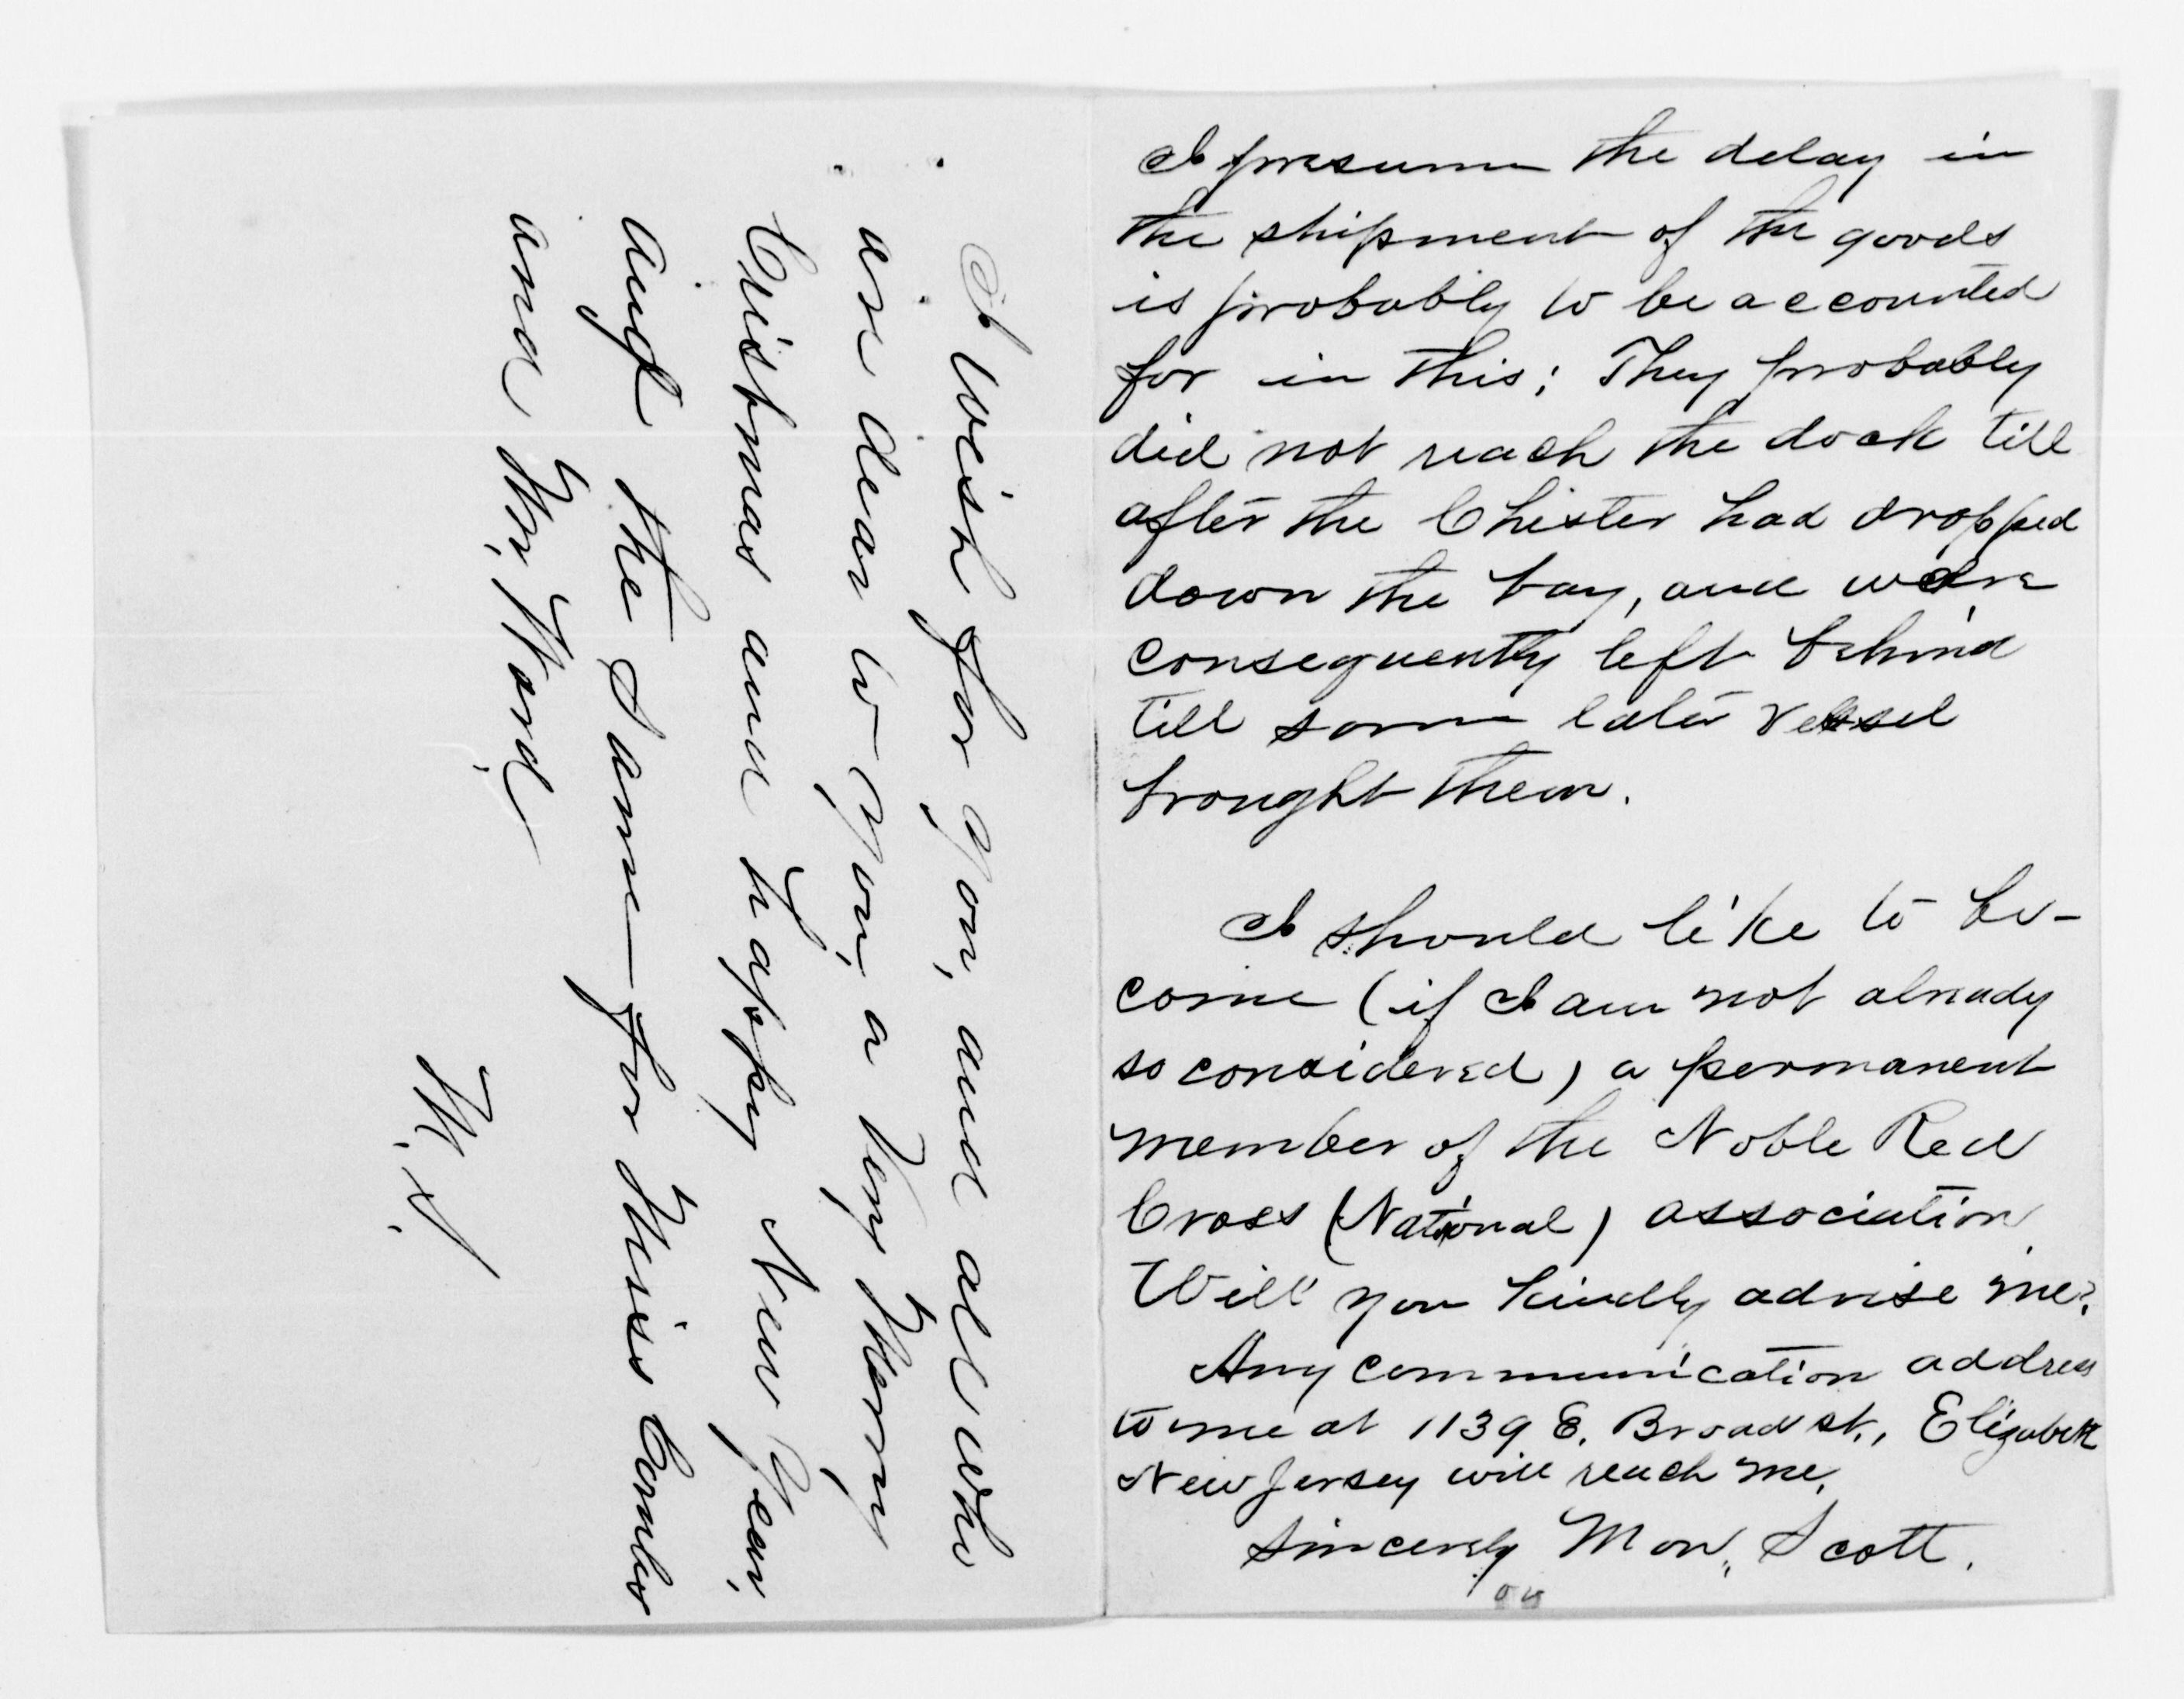 I presume the delay in
the shipment of the goods
is probably to be accounted
for in this; They probably
did not reach the dock till
after the Chester had dropped
down the bay, and were
consequently left behind
till some later vessel
brought them.
I should like to be-
come (if I am not already
so considered) a permanent
member of the Noble Red
Cross (National) association.
Will you kindly advise me?
Any communication address
to me at 1139 E. Broad st., Elizabeth
New Jersey will reach me.
Sincerely Mon. Scott.
I wish for you, and all who
are dear to you, a Very Merry
Cristmas and happy New Year,
and the same for Miss Coombs
and Mr. Ward
M. S.